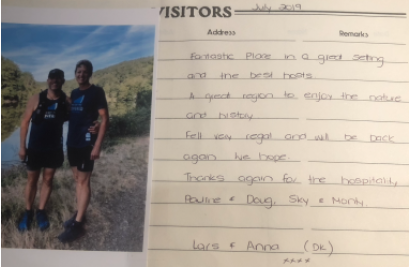 VISITORS
July 2019
Address Remarks
Fantastic Place in a great setting
and the best hosts
A great region to enjoy the nature
and history
Fell very regal and will be back
again we hope.
Thanks again for the hospitality
Pauline & Doug, Sky & Monty.
Lars & Anna (DK)